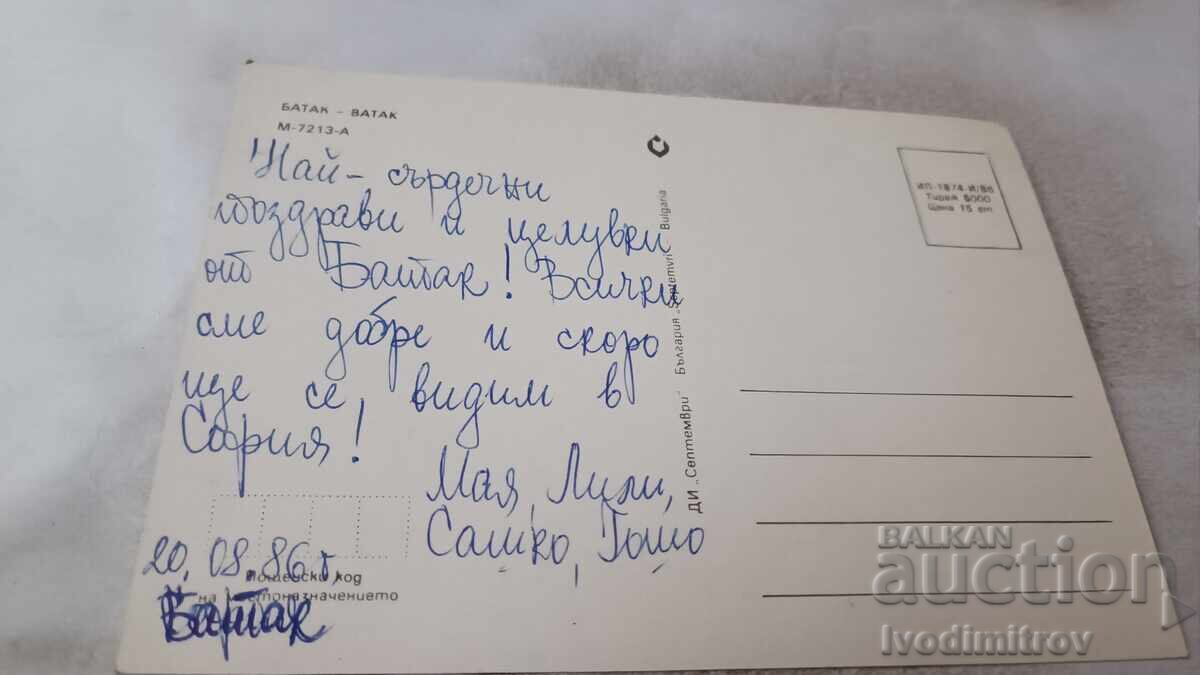 БАТАК – BATAK
М-7213-А
Най-сърдечни
поздрави и целувки
от Батак! Всички
сме добре и скоро
ще се видим в
София!
Мая, Лили,
Сашко, Гошо
20.08.86 г.
Батак
Пощенски код
на местоназначението
ДИ „Септември" България „Septemvri" Bulgaria
ИП-1874-И/86
Тираж 5000
Цена 15 ст
BALKAN
auction
Ivodimitrov